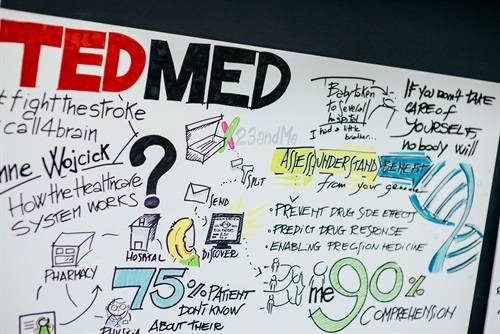 TEDMED
#fightthestroke
call4brain
nne Wojcick
How the Healthcare
SYSTEM WORKS
?
23andMe
SPIT
SEND
DISCOVER
HOSPITAL
PHARMACY
75% PATIENT
DON'T KNOW
ABOUT THEIR
Baby taken
to several
hospital
I had a little
brother...
IF YOU DON'T TAKE
CARE OF
YOURSELF,
nobody will
ASSESS UNDERSTAND BENEFIT
From your genome
• PREVENT DRUG SIDE EFFECTS
• PREDICT DRUG RESPONSE
• ENABLING PRECISION MEDICINE
me 90%
COMPREHENSION